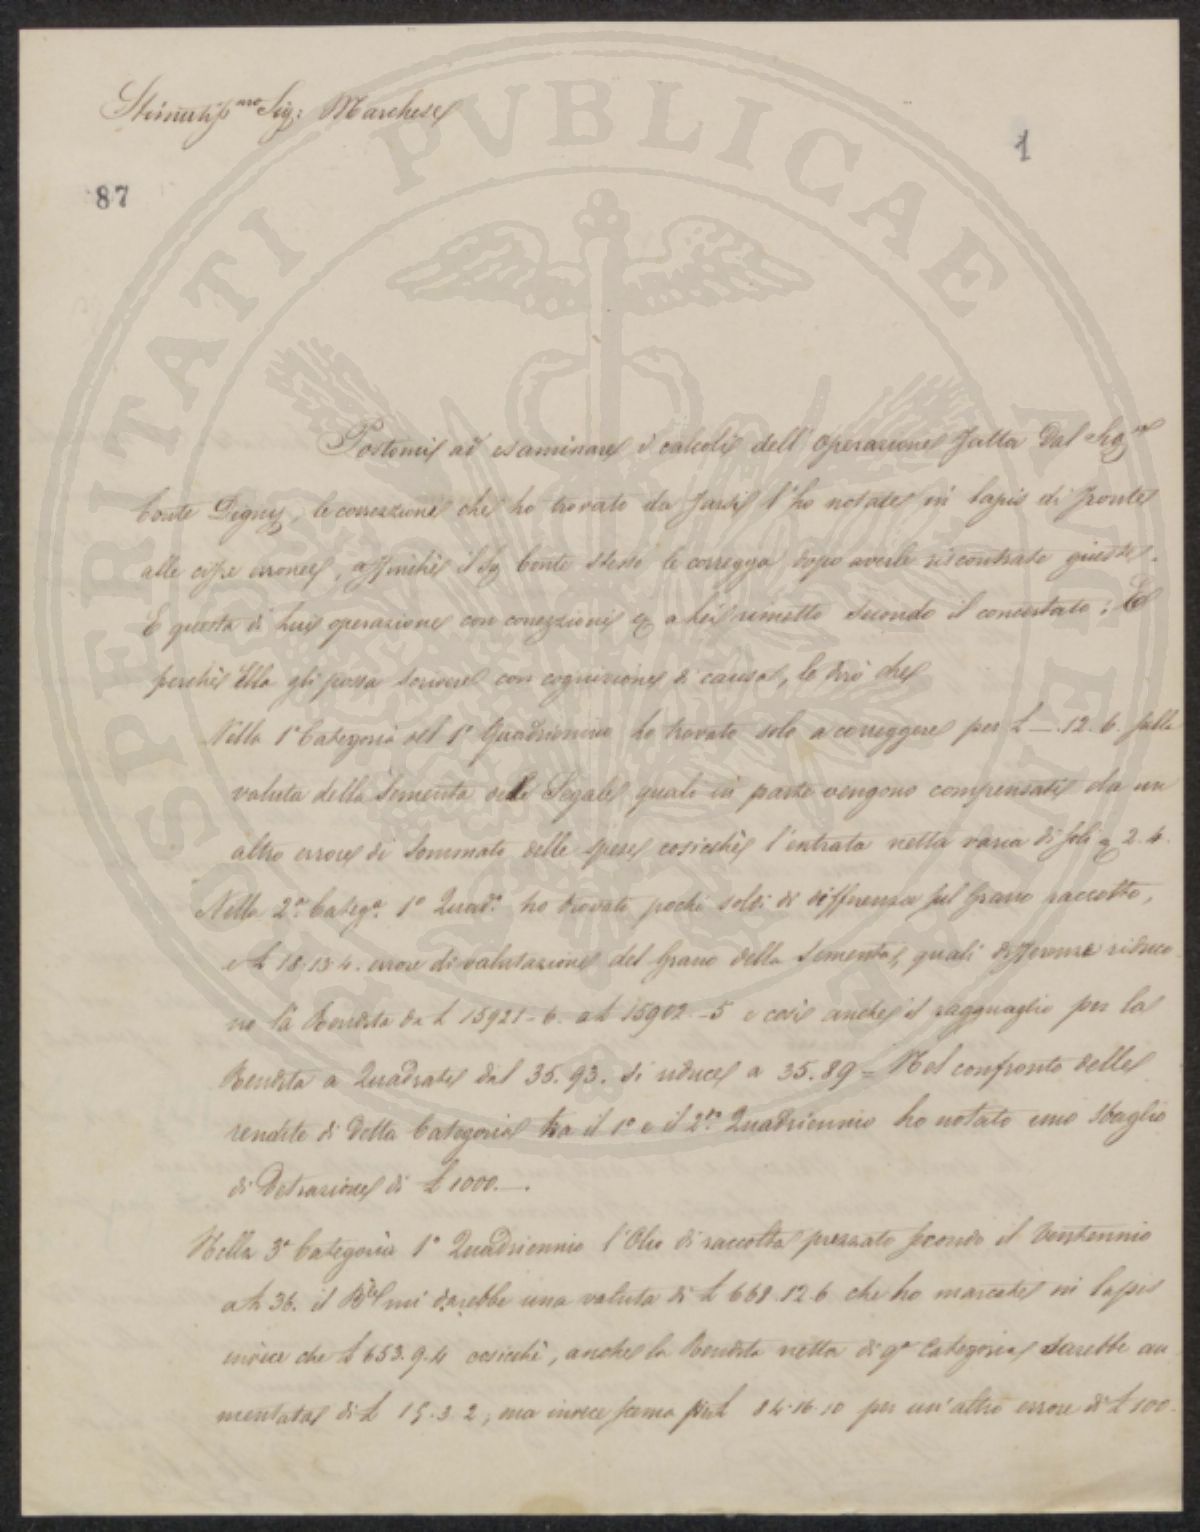 Stimatiss.mo Sig: Marchese
1
87
Postomi ad esaminare i calcoli dell'operazione fatta dal Sig.re
Conte Digny, le correzioni che ho trovato da farsi l'ho notate in lapis di fronte
alle cifre erronee, affinchè il Sig Conte stesso le corregga dopo averle riscontrate giuste.
E questa di Lui operazione con correzzioni a Lei rimetto secondo il concertato; E
perchè Ella gli possa scrivere con cognizione di causa, le dirò che
Nella 1a Categoria del 1o Quadriennio ho trovato solo a correggere per L —.12.6. sulla
valuta della Sementa delle Segale quali in parte vengono compensati da un
altro errore di sommato delle spese cosicchè l'entrata netta varia di soli 2.4.
Nella 2a. Categ.a 1o Quad.o ho trovato pochi soldi di differenza sul Grano raccolto,
e L 18.13.4. errore di valutazione del Grano della Sementa, quali differenze riduco
no la Rendita da L 15921-6. a L 15902.-5 e così anche il ragguaglio per la
Rendita a Quadrate dal 35.93. si riduce a 35.89 = Nel confronto delle
rendite di detta Categoria tra il 1o e il 2.do Quadriennio ho notato uno sbaglio
di Detrazione di L 1000.—.
Nella 3a Categoria 1o Quadriennio l'Olio di raccolta prezzato secondo il Ventennio
a L 36. il mi darebbe una valuta di L 668.12.6 che ho marcate in lapis
invece che L 653.9.4 cosicchè, anche la Rendita netta di qa Categoria sarebbe au
mentata di L 15.3.2, ma invece scema per L 84.16.10 per un'altro errore di L 100.
PROSPERITATI PVBLICAE AVGENDAE